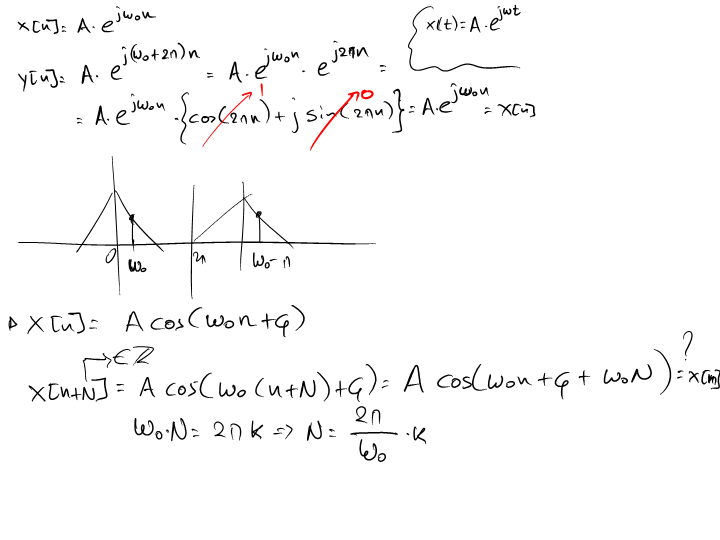 x[n] = A · e^{jω₀n}
x(t) = A · e^{jωt}
y[n] = A · e^{j(ω₀+2π)n} = A · e^{jω₀n} · e^{j2πn} =
1 0
= A · e^{jω₀n} · {cos(2πn) + j sin(2πn)} = A · e^{jω₀n} = x[n]
0 ω₀ 2π ω₀-π
▷ x[n] = A cos(ω₀n+φ)
→ ∈ ℤ ?
x[n+N] = A cos(ω₀(n+N)+φ) = A cos(ω₀n+φ+ω₀N) = x[n]
ω₀·N = 2πk => N = 2π/ω₀ · k